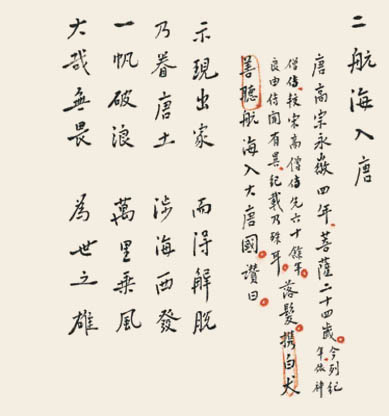 二航海入唐
唐高宗永徽四年。菩薩二十四歲。今列紀年依神
僧傳。較宋高僧傳先六十餘年。良由傳聞有異。紀載乃殊耳。落髮。攜白犬
善聽航海入大唐國。讚曰。
示現出家 而得解脫
乃眷唐土 涉海西發
一帆破浪 萬里乘風
大哉無畏 為世之雄